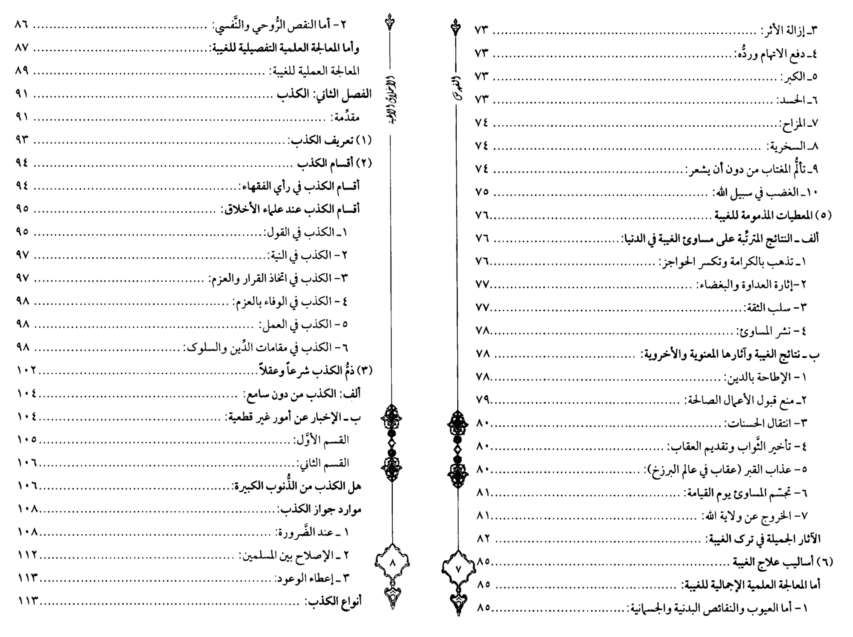 الفهرس
٣ـ إزالة الأثر: ٧٣
٤ـ دفع الاتهام وردُّه: ٧٣
٥ـ الكبر: ٧٣
٦ـ الحسد: ٧٣
٧ـ المزاح: ٧٤
٨ـ السخرية: ٧٤
٩ـ تألُّم المغتاب من دون أن يشعر: ٧٤
١٠ـ الغضب في سبيل الله: ٧٥
(٥) المعطيات المذمومة للغيبة ٧٦
ألف ـ النتائج المترتِّبة على مساوئ الغيبة في الدنيا: ٧٦
١ـ تذهب بالكرامة وتكسر الحواجز: ٧٦
٢ـ إثارة العداوة والبغضاء: ٧٧
٣ـ سلب الثقة: ٧٧
٤ـ نشر المساوئ: ٧٨
ب ـ نتائج الغيبة وآثارها المعنوية والأخروية: ٧٨
١- الإطاحة بالدين: ٧٨
٢ـ منع قبول الأعمال الصالحة: ٧٩
٣- انتقال الحسنات: ٨٠
٤- تأخير الثَّواب وتقديم العقاب: ٨٠
٥- عذاب القبر (عقاب في عالم البرزخ): ٨٠
٦- تجسّم المساوئ يوم القيامة: ٨١
٧- الخروج عن ولاية الله: ٨١
الآثار الجميلة في ترك الغيبة: ٨٢
(٦) أساليب علاج الغيبة ٨٥
أما المعالجة العلمية الإجمالية للغيبة: ٨٥
١- أما العيوب والنقائص البدنية والجسمانية: ٨٥
٧
٢- أما النقص الرُّوحي والنَّفسي: ٨٦
وأما المعالجة العلمية التفصيلية للغيبة: ٨٧
المعالجة العملية للغيبة: ٨٩
الفصل الثاني: الكذب ٩١
مقدِّمة: ٩١
(١) تعريف الكذب: ٩٣
(٢) أقسام الكذب ٩٤
أقسام الكذب في رأي الفقهاء: ٩٤
أقسام الكذب عند علماء الأخلاق: ٩٥
١ـ الكذب في القول: ٩٥
٢- الكذب في النية: ٩٧
٣- الكذب في اتخاذ القرار والعزم: ٩٧
٤- الكذب في الوفاء بالعزم: ٩٨
٥- الكذب في العمل: ٩٨
٦- الكذب في مقامات الدِّين والسلوك: ٩٨
(٣) ذمُّ الكذب شرعاً وعقلاً ١٠٢
ألف: الكذب من دون سامع: ١٠٤
ب ـ الإخبار عن أمور غير قطعية: ١٠٤
القسم الأوَّل: ١٠٥
القسم الثاني: ١٠٦
هل الكذب من الذُّنوب الكبيرة: ١٠٦
موارد جواز الكذب: ١٠٨
١ ـ عند الضَّرورة: ١٠٨
٢ ـ الإصلاح بين المسلمين: ١١٢
٣ ـ إعطاء الوعود: ١١٣
أنواع الكذب: ١١٣
٨